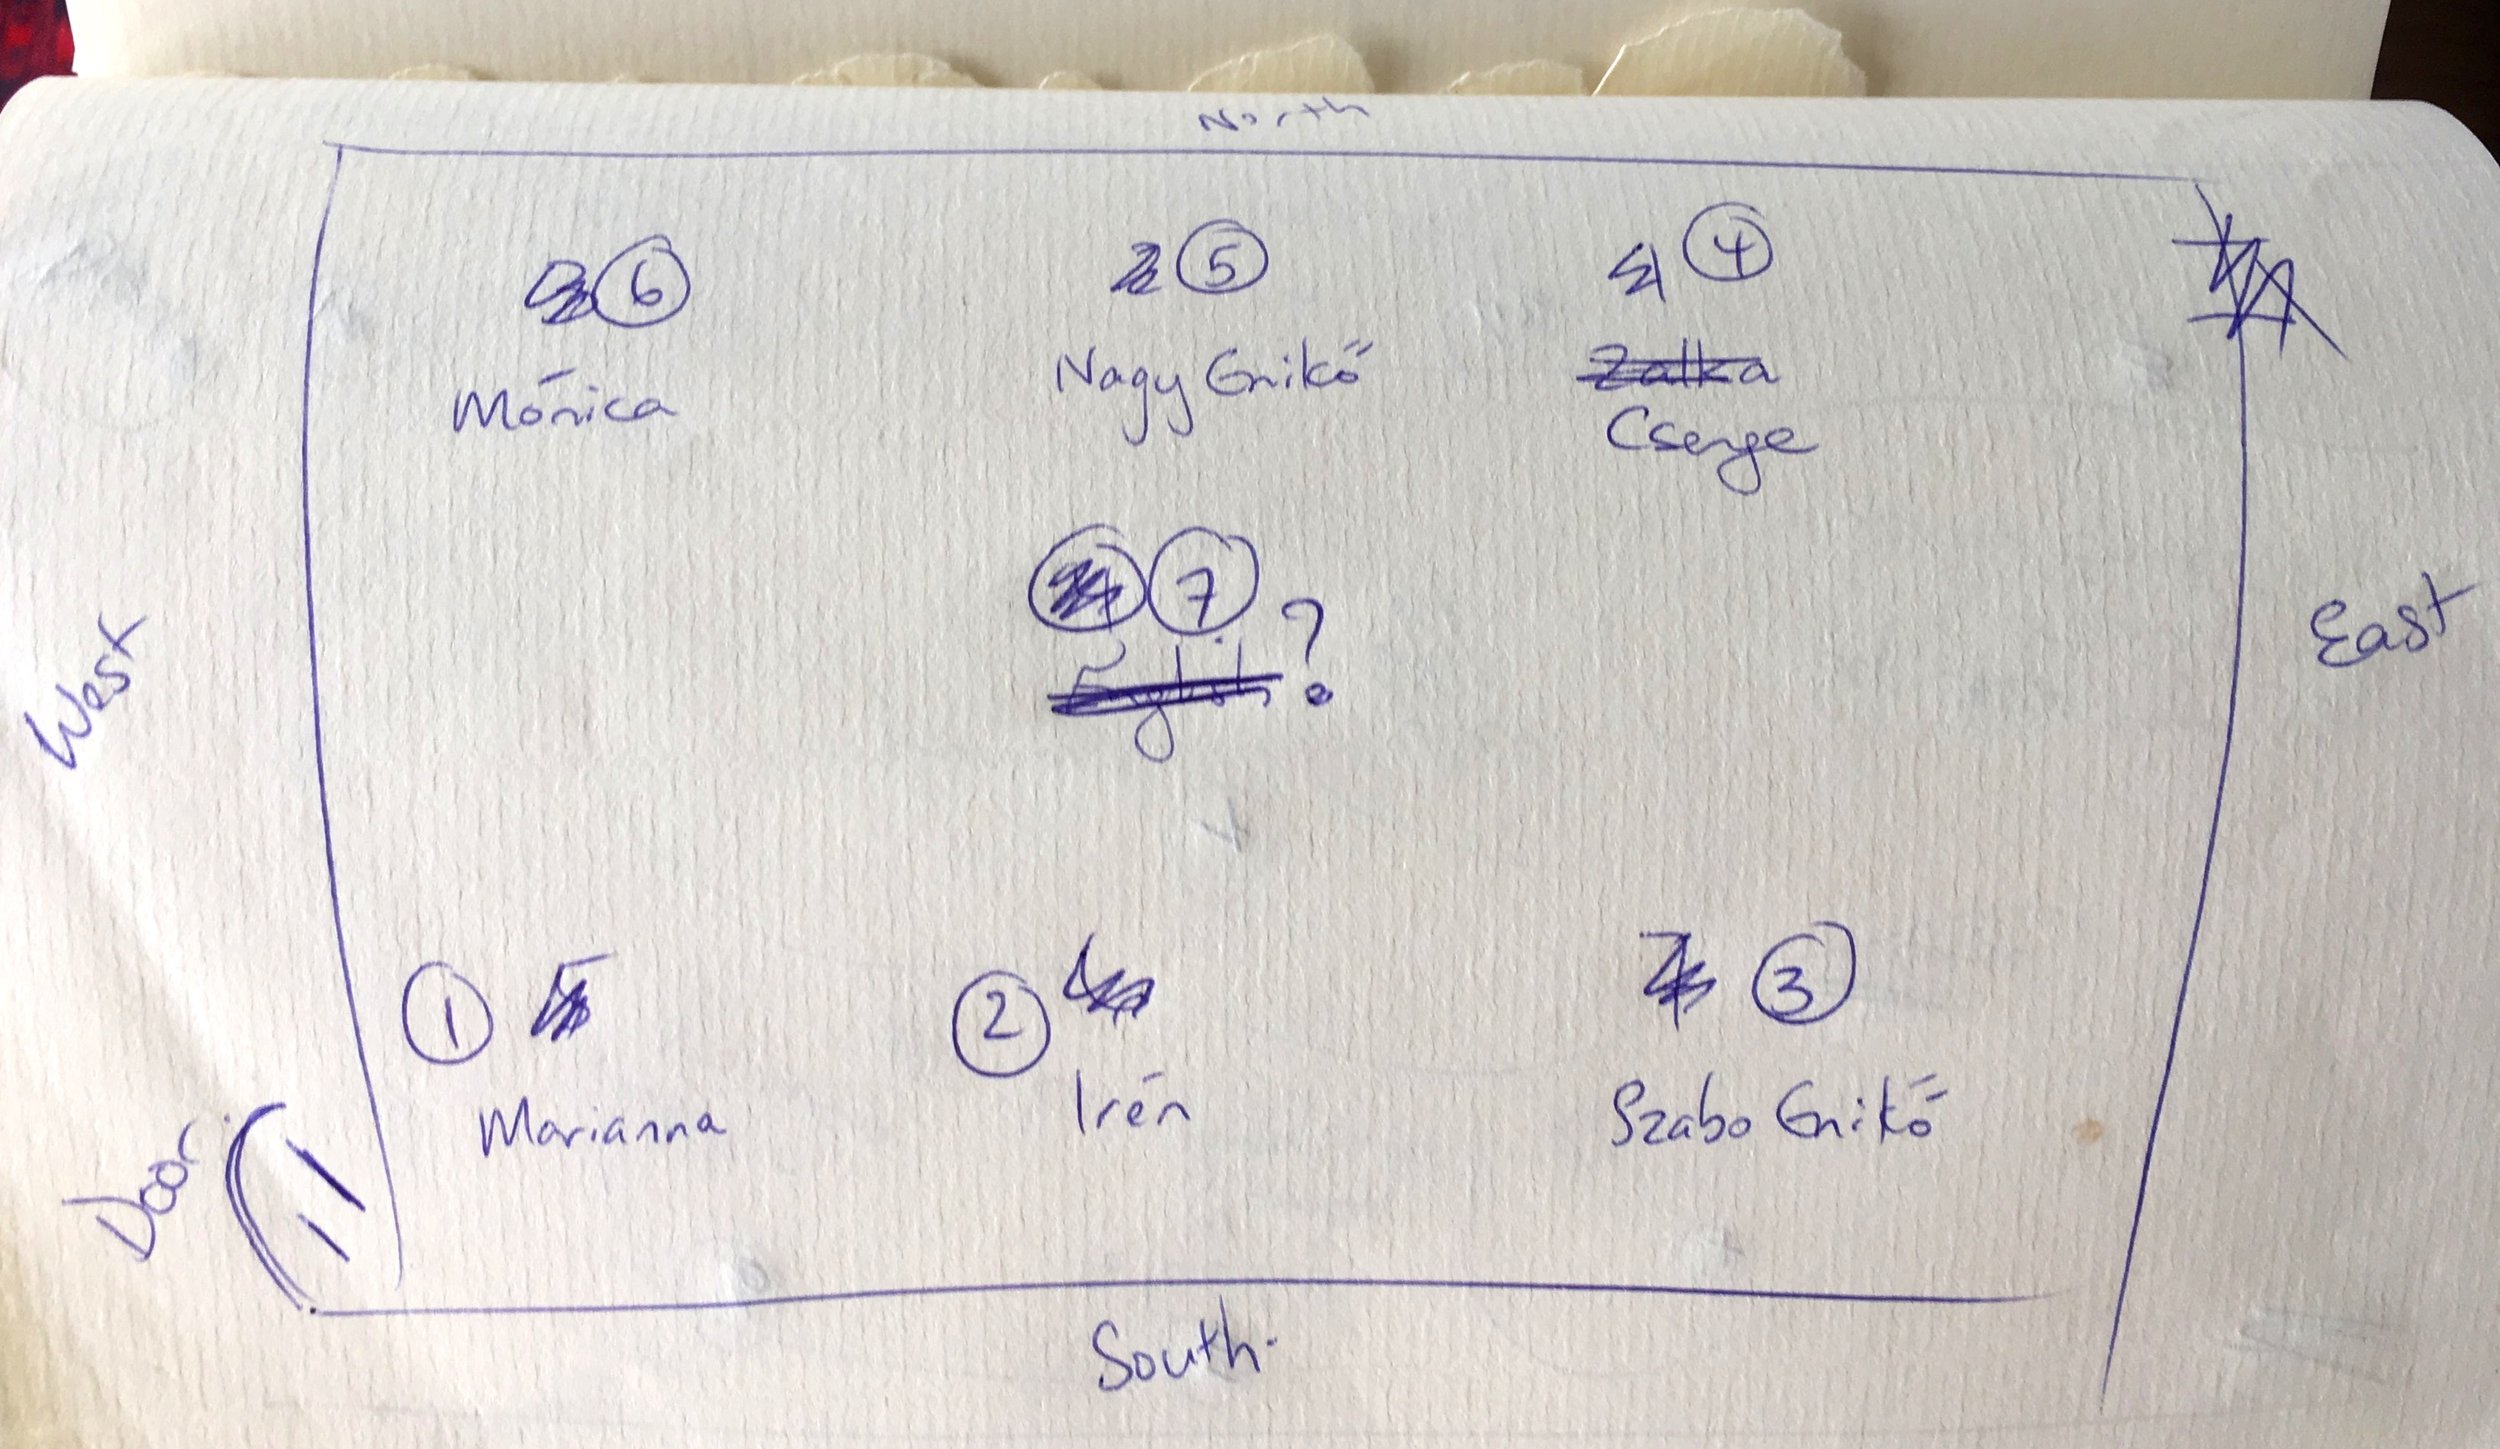 North
6 5 4
Mónica Nagy Enikő Zalka
Csenge
7
English ?
West East
1 2 3
Marianna Irén Szabo Enikő
Door
South.